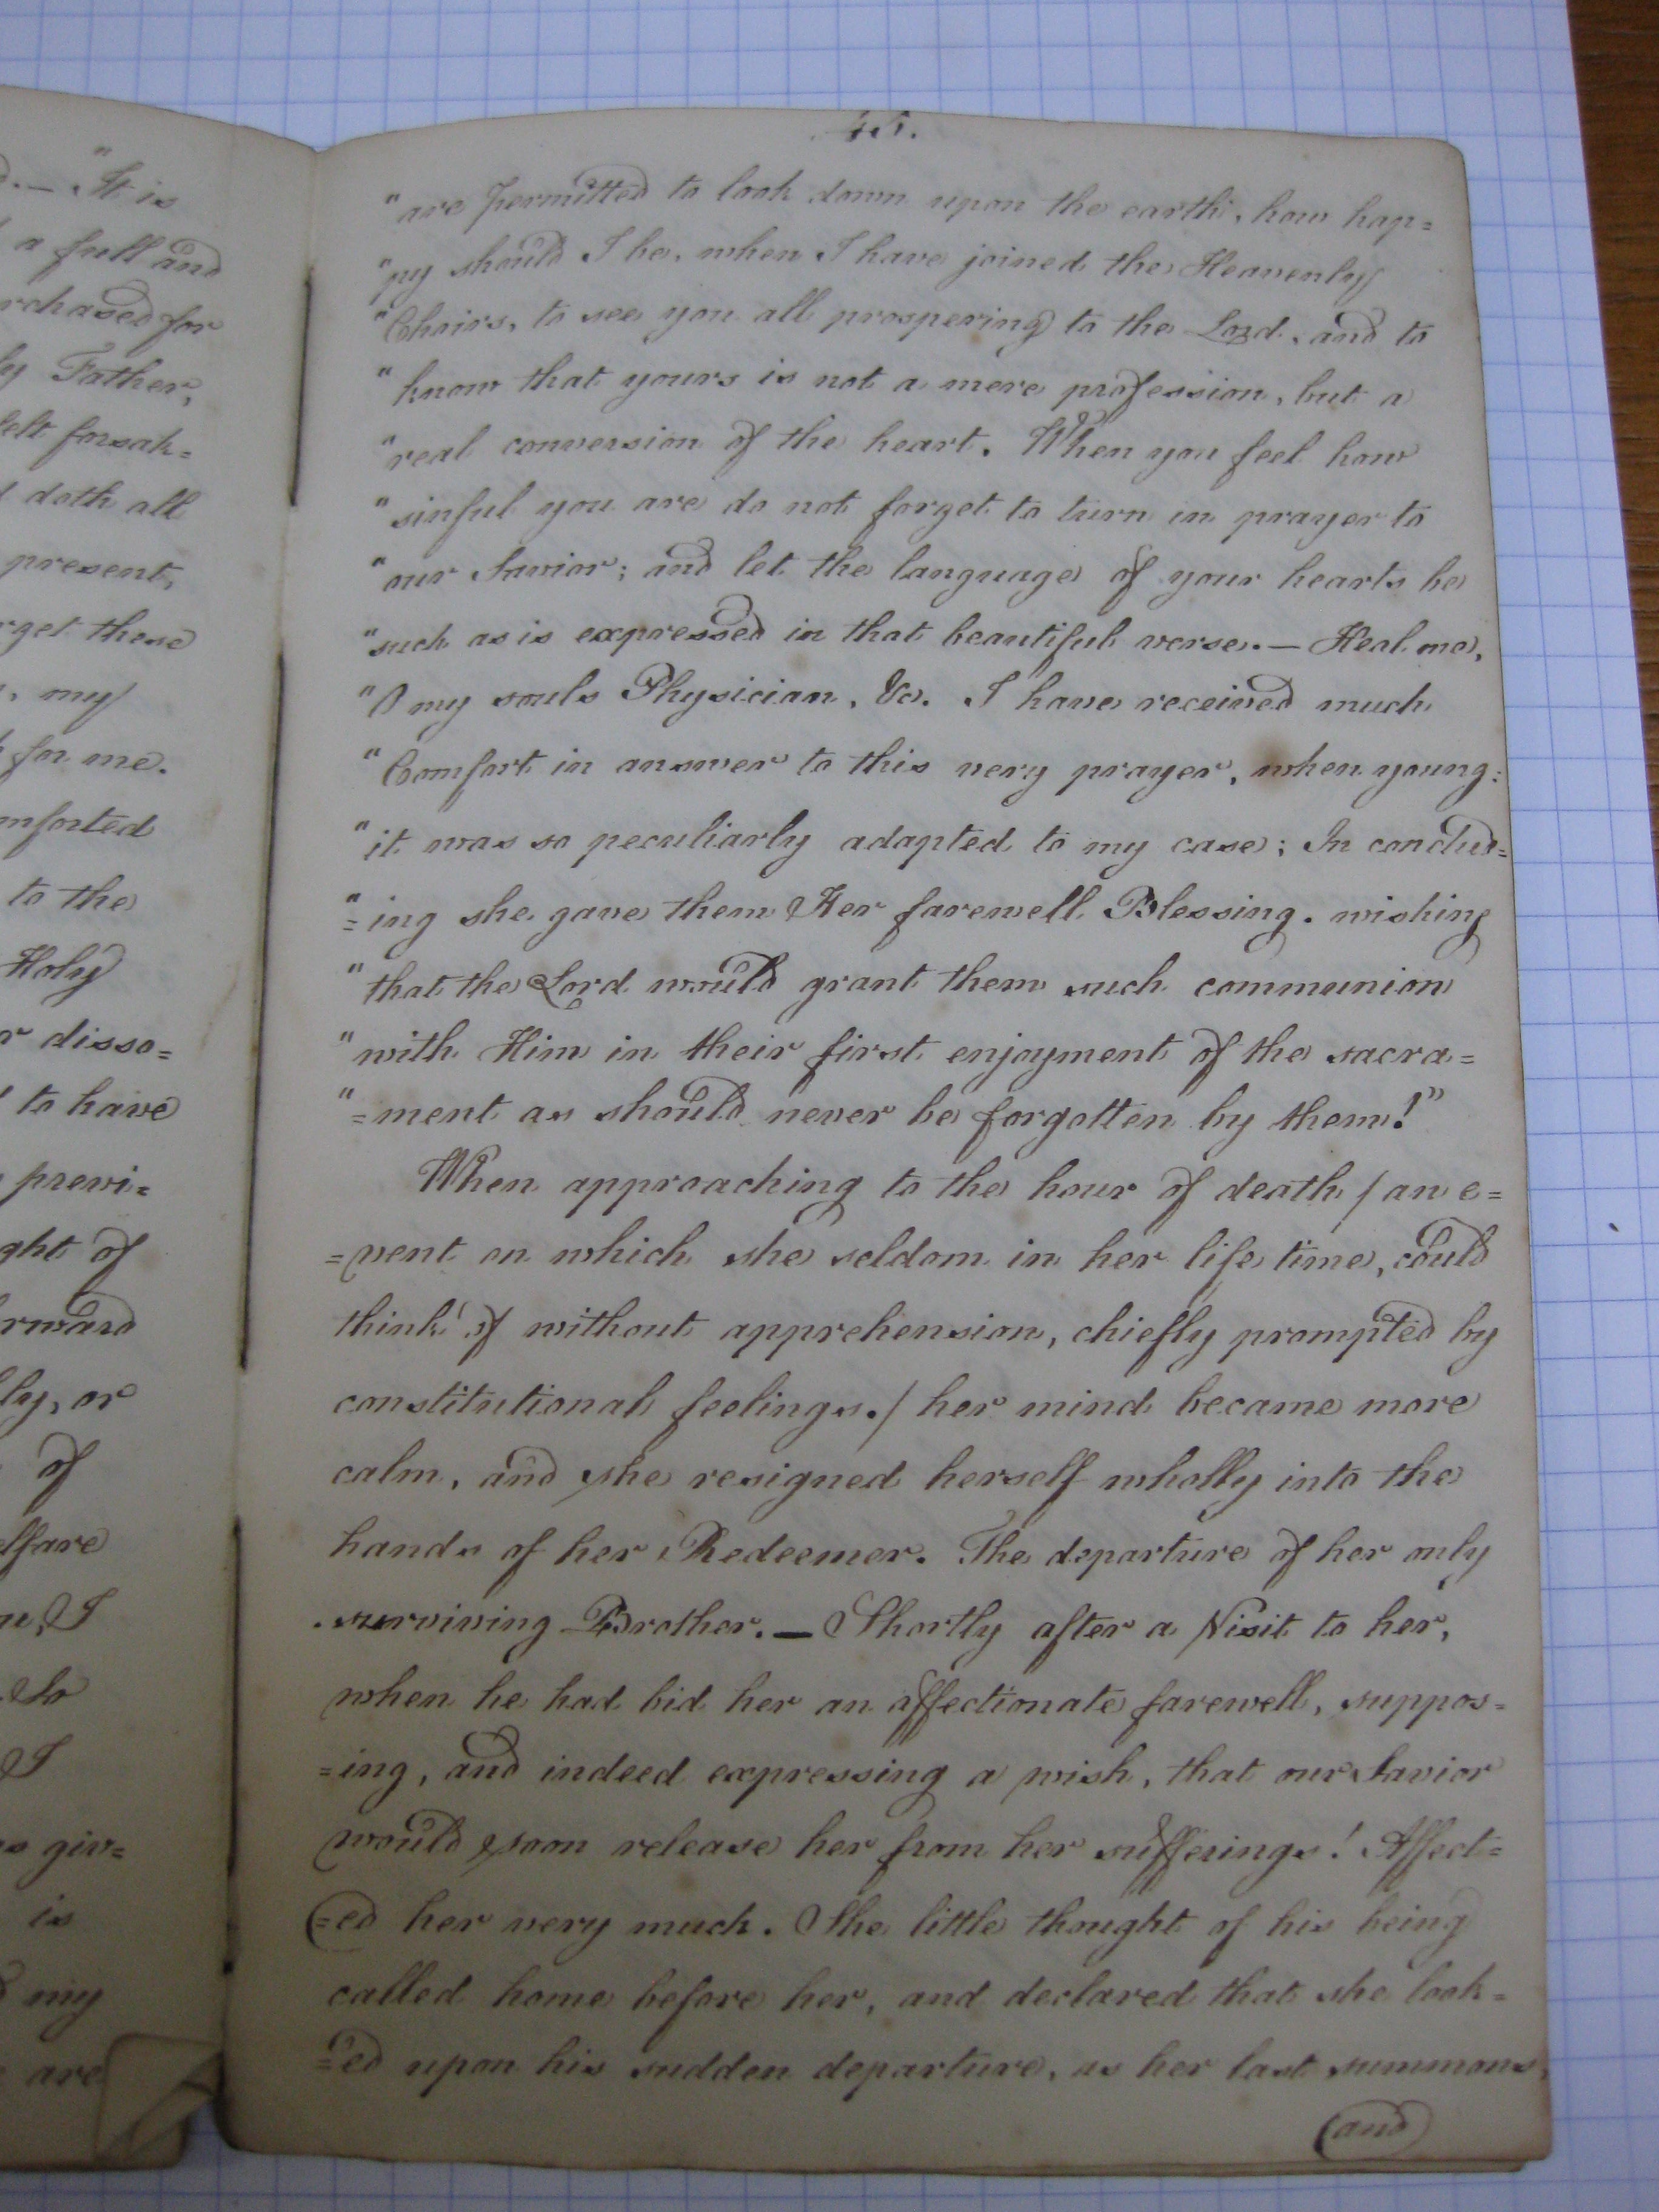 d.— "It is
a full and
rchased for
ly Father,
felt forsak=
doth all
present,
rget these
, my
for me.
mforted
to the
Holy
or disso=
to have
previ=
ght of
rward
lly, or
of
elfare
I
So
I
as giv=
is
my
are
45.
"are permitted to look down upon the earth, how hap=
"py should I be, when I have joined the Heavenly
"Choirs, to see you all prospering to the Lord, and to
"know that yours is not a mere profession, but a
"real conversion of the heart. When you feel how
"sinful you are do not forget to turn in prayer to
"our Savior; and let the language of your hearts be
"such as is expressed in that beautiful verse.— Heal me,
"O my souls Physician, &c. I have received much
"Comfort in answer to this very prayer, when young:
"it was so peculiarly adapted to my case; In conclud=
"=ing she gave them Her farewell Blessing. wishing
"that the Lord would grant them such communion
"with Him in their first enjoyment of the sacra=
"=ment as should never be forgotten by them!"
When approaching to the hour of death / an e=
=vent on which she seldom in her life time, could
think of without apprehension, chiefly prompted by
constitutional feelings./ her mind became more
calm, and she resigned herself wholly into the
hands of her Redeemer. The departure of her only
surviving Brother.— Shortly after a Visit to her,
when he had bid her an affectionate farewell, suppos=
=ing, and indeed expressing a wish, that our Savior
would soon release her from her sufferings! Affect=
=ed her very much. She little thought of his being
called home before her, and declared that she look=
=ed upon his sudden departure, as her last summons,
(and)